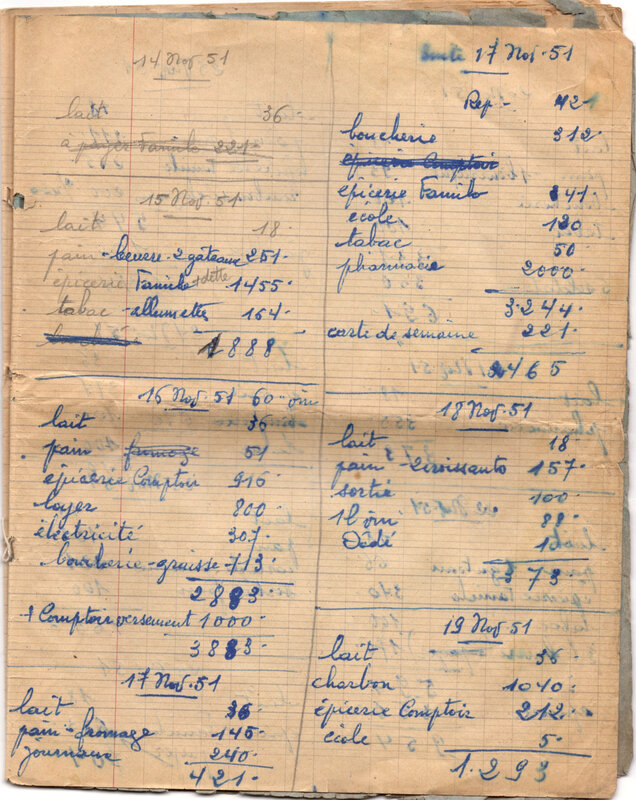 14 Nov 51
lait 36
à payer Familo 221
15 Nov 51
lait 18.
pain - beurre - 2 gâteaux 251.
épicerie Familo + dette 1455
tabac - allumettes 164.
1888
16 Nov. 51 60
lait 36
pain fromage 51
épicerie Comptoir 916
loyer 800.
électricité 307.
boucherie - graisse - 713.
2883
+ Comptoir versement 1000.
3883.
17 Nov. 51
lait 36
pain - fromage 145.
journaux 240.
421.
Suite 17 Nov. 51
Rep - 421
boucherie 312.
épicerie Comptoir
épicerie Familo 341
école 120
tabac 50
pharmacie 2000.
3.244.
carte de semaine 221.
3465
18 Nov. 51
lait 18
pain - 2 croissants 157.
sortie 100.
1 l vin 88.
Dédé 10
373.
19 Nov 51
lait 36
charbon 1040.
épicerie Comptoir 212.
école 5.
1.293